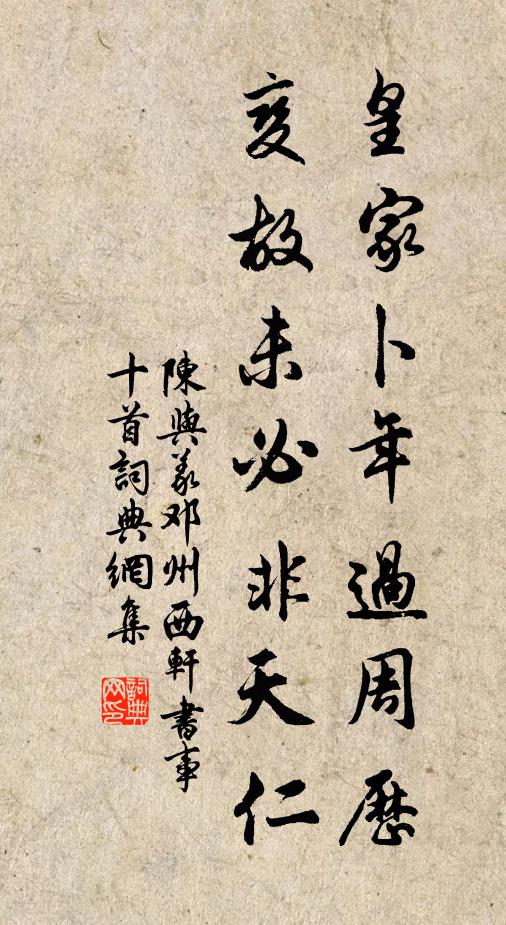 皇家卜年過周歷
變故未必非天仁
陳與義邓州西軒書事
十首詞典網集
詞典
网印